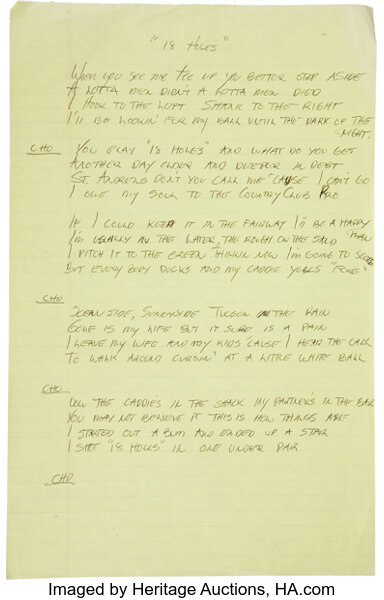 "18 HOLES"
WHEN YOU SEE ME TEE UP YOU BETTER STEP ASIDE
A LOTTA MEN DIDN'T A LOTTA MEN DIED
I HOOK TO THE LEFT SHANK TO THE RIGHT
I'LL BE LOOKIN' FOR MY BALL UNTIL THE DARK OF THE
NIGHT.
CHO YOU PLAY "18 HOLES" AND WHAT DO YOU GET
ANOTHER DAY OLDER AND DEEPER IN DEBT
ST. ANDREWS DON'T YOU CALL ME 'CAUSE I CAN'T GO
I OWE MY SOUL TO THE COUNTRY CLUB PRO
IF I COULD KEEP IT IN THE FAIRWAY I'D BE A HAPPY
MAN
I'M USUALLY IN THE WATER, THE ROUGH OR THE SAND
I PITCH IT TO THE GREEN THINKIN NOW I'M GOING TO SCORE
BUT EVERY BODY DUCKS AND MY CADDIE YELLS "FORE"
CHO
OCEANSIDE, SUNNYSIDE THE RAIN
GOLF IS MY WIFE BUT IT SURE IS A PAIN
I LEAVE MY WIFE AND MY KIDS 'CAUSE I HEAR THE CALL
TO WALK AROUND CURSIN' AT A LITTLE WHITE BALL
CHO
NOW THE CADDIE'S IN THE SHACK MY PARTNER'S IN THE BAR
YOU MAY NOT BELIEVE IT THIS IS HOW THINGS ARE
I STARTED OUT A BUM AND ENDED UP A STAR
I SHOT "18 HOLES" IN ONE UNDER PAR
CHO
Imaged by Heritage Auctions, HA.com